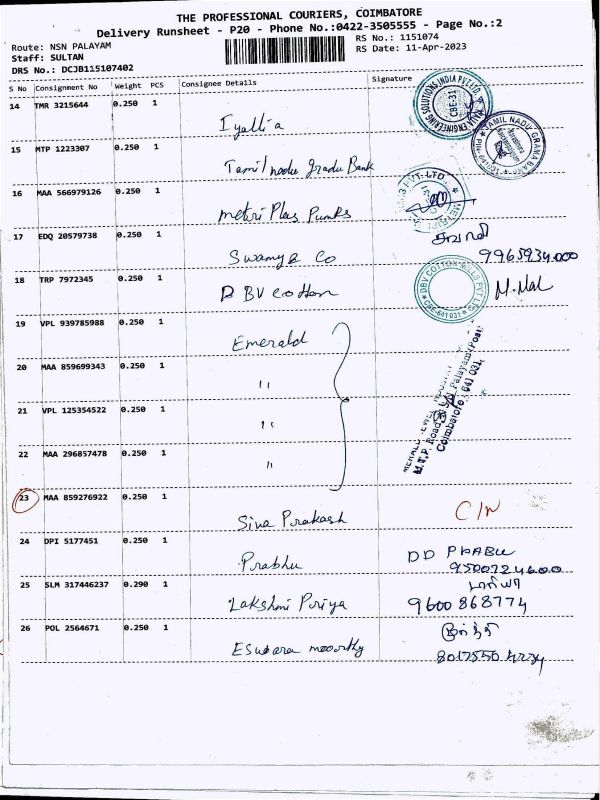 THE PROFESSIONAL COURIERS, COIMBATORE
Delivery Runsheet - P20 - Phone No.:0422-3505555 - Page No.:2
Route: NSN PALAYAM
RS No.: 1151074
Staff: SULTAN
RS Date: 11-Apr-2023
DRS No.: DCJB115107402
S No Consignment No Weight PCS Consignee Details Signature
14 TMR 3215644 0.250 1
15 MTP 1223307 0.250 1
Tamil nadu grada Bank
16 MAA 566979126 0.250 1
metri Plas Pumks
17 EDQ 20579738 0.250 1 சுவாமி
Swamy & Co 9965934000
18 TRP 7972345 0.250 1
D BV cotton
DBV COTTON MILLS PVT LTD
CBE-641 031
19 VPL 939785988 0.250 1
Emerald
20 MAA 859699343 0.250 1
"
21 VPL 125354522 0.250 1
"
22 MAA 296857478 0.250 1
"
M.T.P. Road
Palayam (Post)
Coimbatore - 641 031.
23 MAA 859276922 0.250 1
Siva Prakash C/N
24 DPI 5177451 0.250 1
Prabhu DD PRABU
25 SLM 317446237 0.290 1
Lakshmi Priya 9600868774
26 POL 2564671 0.250 1
Eswara moorthy